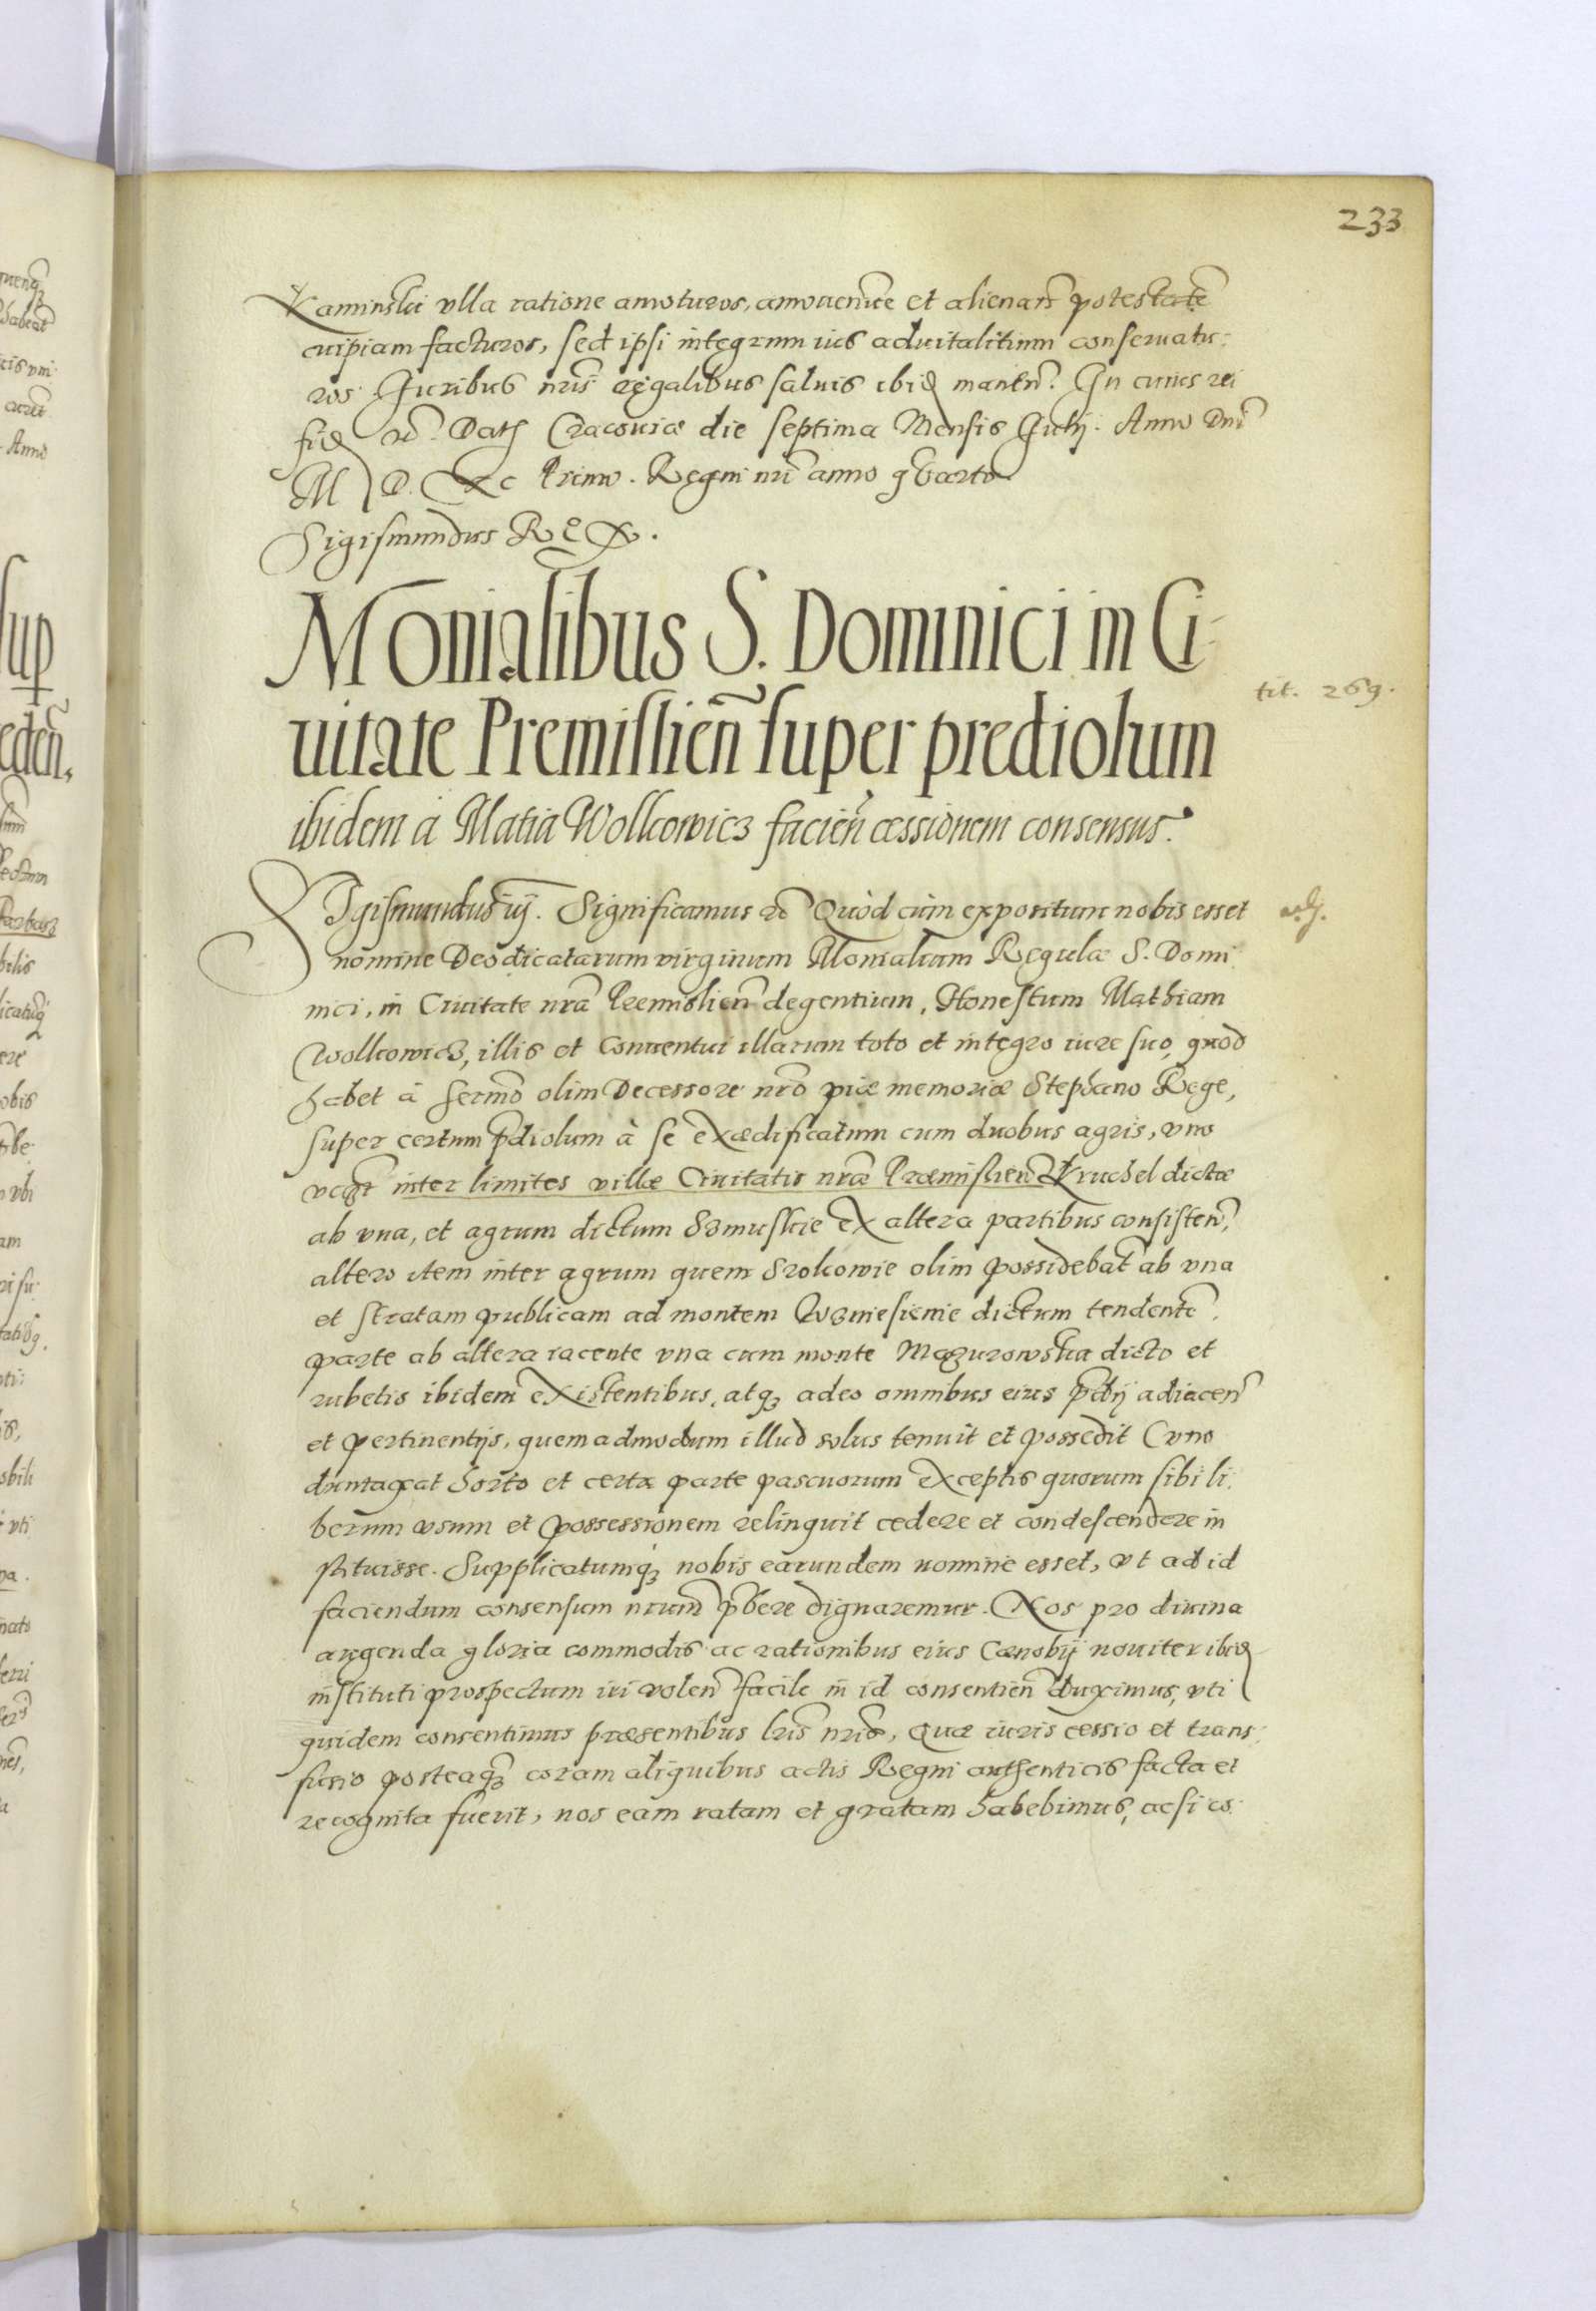 233
Kaminski vlla ratione amoturos, amouen̄ve et alienan̄ potestatē
cuipiam facturos, sed ipsi integrum ius aduitalitium conseruatu:
ros. Iuribus nr̄is regalibus saluis ibid manen̄. In cuius rei
fid &c. Dat Cracouiæ die septima Mensis Iulij. Anno Dnī
M D. XC Primo. Regni nr̄i anno quarto
Sigismundus Rex.
Monialibus S. Dominici in Ci-
uitate Premislien̄ super prediolum
ibidem à Matia Wolkowicz facien̄ cessionem consensus.
tit. 269.
SIgismundus iij. Significamus &c Quòd cùm expositum nobis esset
nomine Deodicatarum virginum Monialium Regulæ S. Domi
nici, in Ciuitate nrā Premislien̄ degentium, Honestum Mathiam
Wolkowicz, illis et Conuentui illarum toto et integro iure suo, quod
habet à Sermō olim Decessore nrō piæ memoriæ Stephano Rege,
super certum p̄diolum à se exædificatum cum duobus agris, vno
inter limites villæ Ciuitatis nræ Præmislien̄ Kruchel dictæ
ab vna, et agrum dictum Szmuskie ex altera partibus consisten̄,
altero item inter agrum quem Srokowie olim possidebat ab vna
et stratam publicam ad montem Wzniesienie dictum tendentē.
parte ab altera iacente vna cum monte Mazurowska dicto et
rubetis ibidem existentibus, atq adeo omnibus eius p̄dij adiacen̄
et pertinentijs, quemadmodum illud solus tenuit et possedit (vno
duntaxat horto et certa parte pascuorum exceptis quorum sibi li:
berum vsum et possessionem relinquit cedere et condescendere in
stituisse. Supplicatumq nobis earundem nomine esset, vt ad id
faciendum consensum nrum p̄bere dignaremur. Nos pro diuina
augenda gloria commodis ac rationibus eius Cænobij nouiter ibid
instituti prospectum iri volen̄ facile in id consentien̄ duximus, vti
quidem consentimus præsentibus lr̄is nr̄is, Quæ iuris cessio et trans:
fusio posteaq coram aliquibus actis Regni authenticis facta et
recognita fuerit, nos eam ratam et gratam habebimus, ac si co: